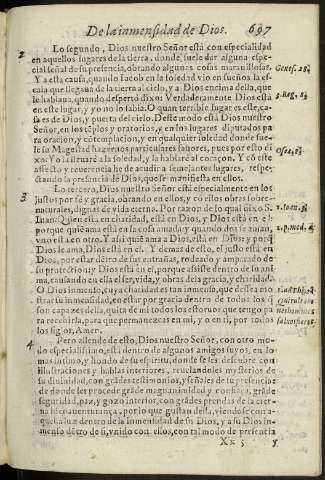 De la inmensidad de Dios. 697
2 Lo segundo, Dios nuestro Señor está con especialidad
en aquellos lugares de la tierra, donde suele dar alguna espe-
cial señal de su presencia, obrando algunas cosas marauillosas.
Y a esta causa, quando Iacob en la soledad vio en sueños la es-
cala que llegaua de la tierra al cielo, y a Dios encima della, que
le hablaua, quando despertò dixo: Verdaderamente Dios està
en este lugar, y yo no lo sabia. O quan terrible lugar es este, ca-
sa es de Dios, y puerta del cielo. Deste modo està Dios nuestro
Señor, en los tẽplos y oratorios, y en los lugares diputados pa-
ra oracion, y cõtemplacion, y en qualquier soledad donde sue-
le su Magestad hazernos particulares fauores, pues por esto di-
xo: Yo la lleuarè a la soledad, y la hablarè al coraçon. Y cõ este
affecto y reuerencia he de acudir a semejantes lugares, respec-
tando la presencia de Dios, que se manifiesta en ellos.
Genes. 28.
3. Reg. 8.
Osee. 2.
3 Lo tercero, Dios nuestro Señor està especialmente en los
justos por fè y gracia, obrando en ellos, y cõ ellos obras sobre-
naturales, dignas de vida eterna. Por razon de lo qual dixo S.
Iuan: Quien està en charidad, està en Dios, y Dios està en el:
porque quiẽ ama està en la cosa amada: y quando dos se aman,
vno està en otro. Y assi què ama a Dios, està en Dios; y porq̃
Dios le ama, Dios està en el. Y demas de esto, el justo està en
Dios, por estar dẽtro de sus entrañas, rodeado y amparado de
su protection: y Dios està en el, porque assiste dentro de su ani-
ma, causando en ella el ser, vida, y obras de la gracia, y charidad.
O Dios inmenso, cuya charidad es tan inmensa, que dessea mo-
strar su inmensidad, en estar por gracia dentro de todos los q̃
son capazes della, quita de mi todos los estoruos que tengo pa-
ra recebirla, para que permanezcas en mi, y yo en ti, por todos
los siglos, Amen.
1. Ioan. 4.
2. p. med.
4 Pero allende de esto, Dios nuestro Señor, con otro mo-
do especialissimo, està dentro de algunos amigos suyos, en lo
mas intimo, y hondo de su espiritu, donde se les descubre con
illustraciones y hablas interiores, reuelandoles mysterios de
su diuinidad, con grãdes testimonios, y señales de su presencia:
de donde les procede grãde magnanimidad y confiãça, grãde
seguridad, paz, y gozo interior, con grãdes prendas de la eter-
na bienauenturança, por lo que gustan della, viendose con a-
quella luz dentro de la inmensidad de su Dios, y a su Dios in-
menso dẽtro de si, vnido con ellos, con tal modo de presencia
Xx 5 y